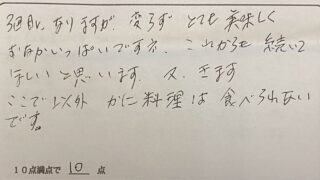 3回目になりますが、変らず とても 美味しく
おなかいっぱいです。 これからも 続いて
ほしいと思います。 又、きます
ここで以外 かに料理は 食べられない
です。
10点満点で 10 点